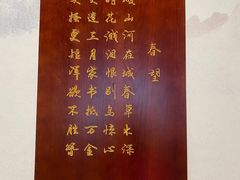 春望
破山河在城春草木深
时花溅泪恨别鸟惊心
火连三月家书抵万金
头搔更短浑欲不胜簪